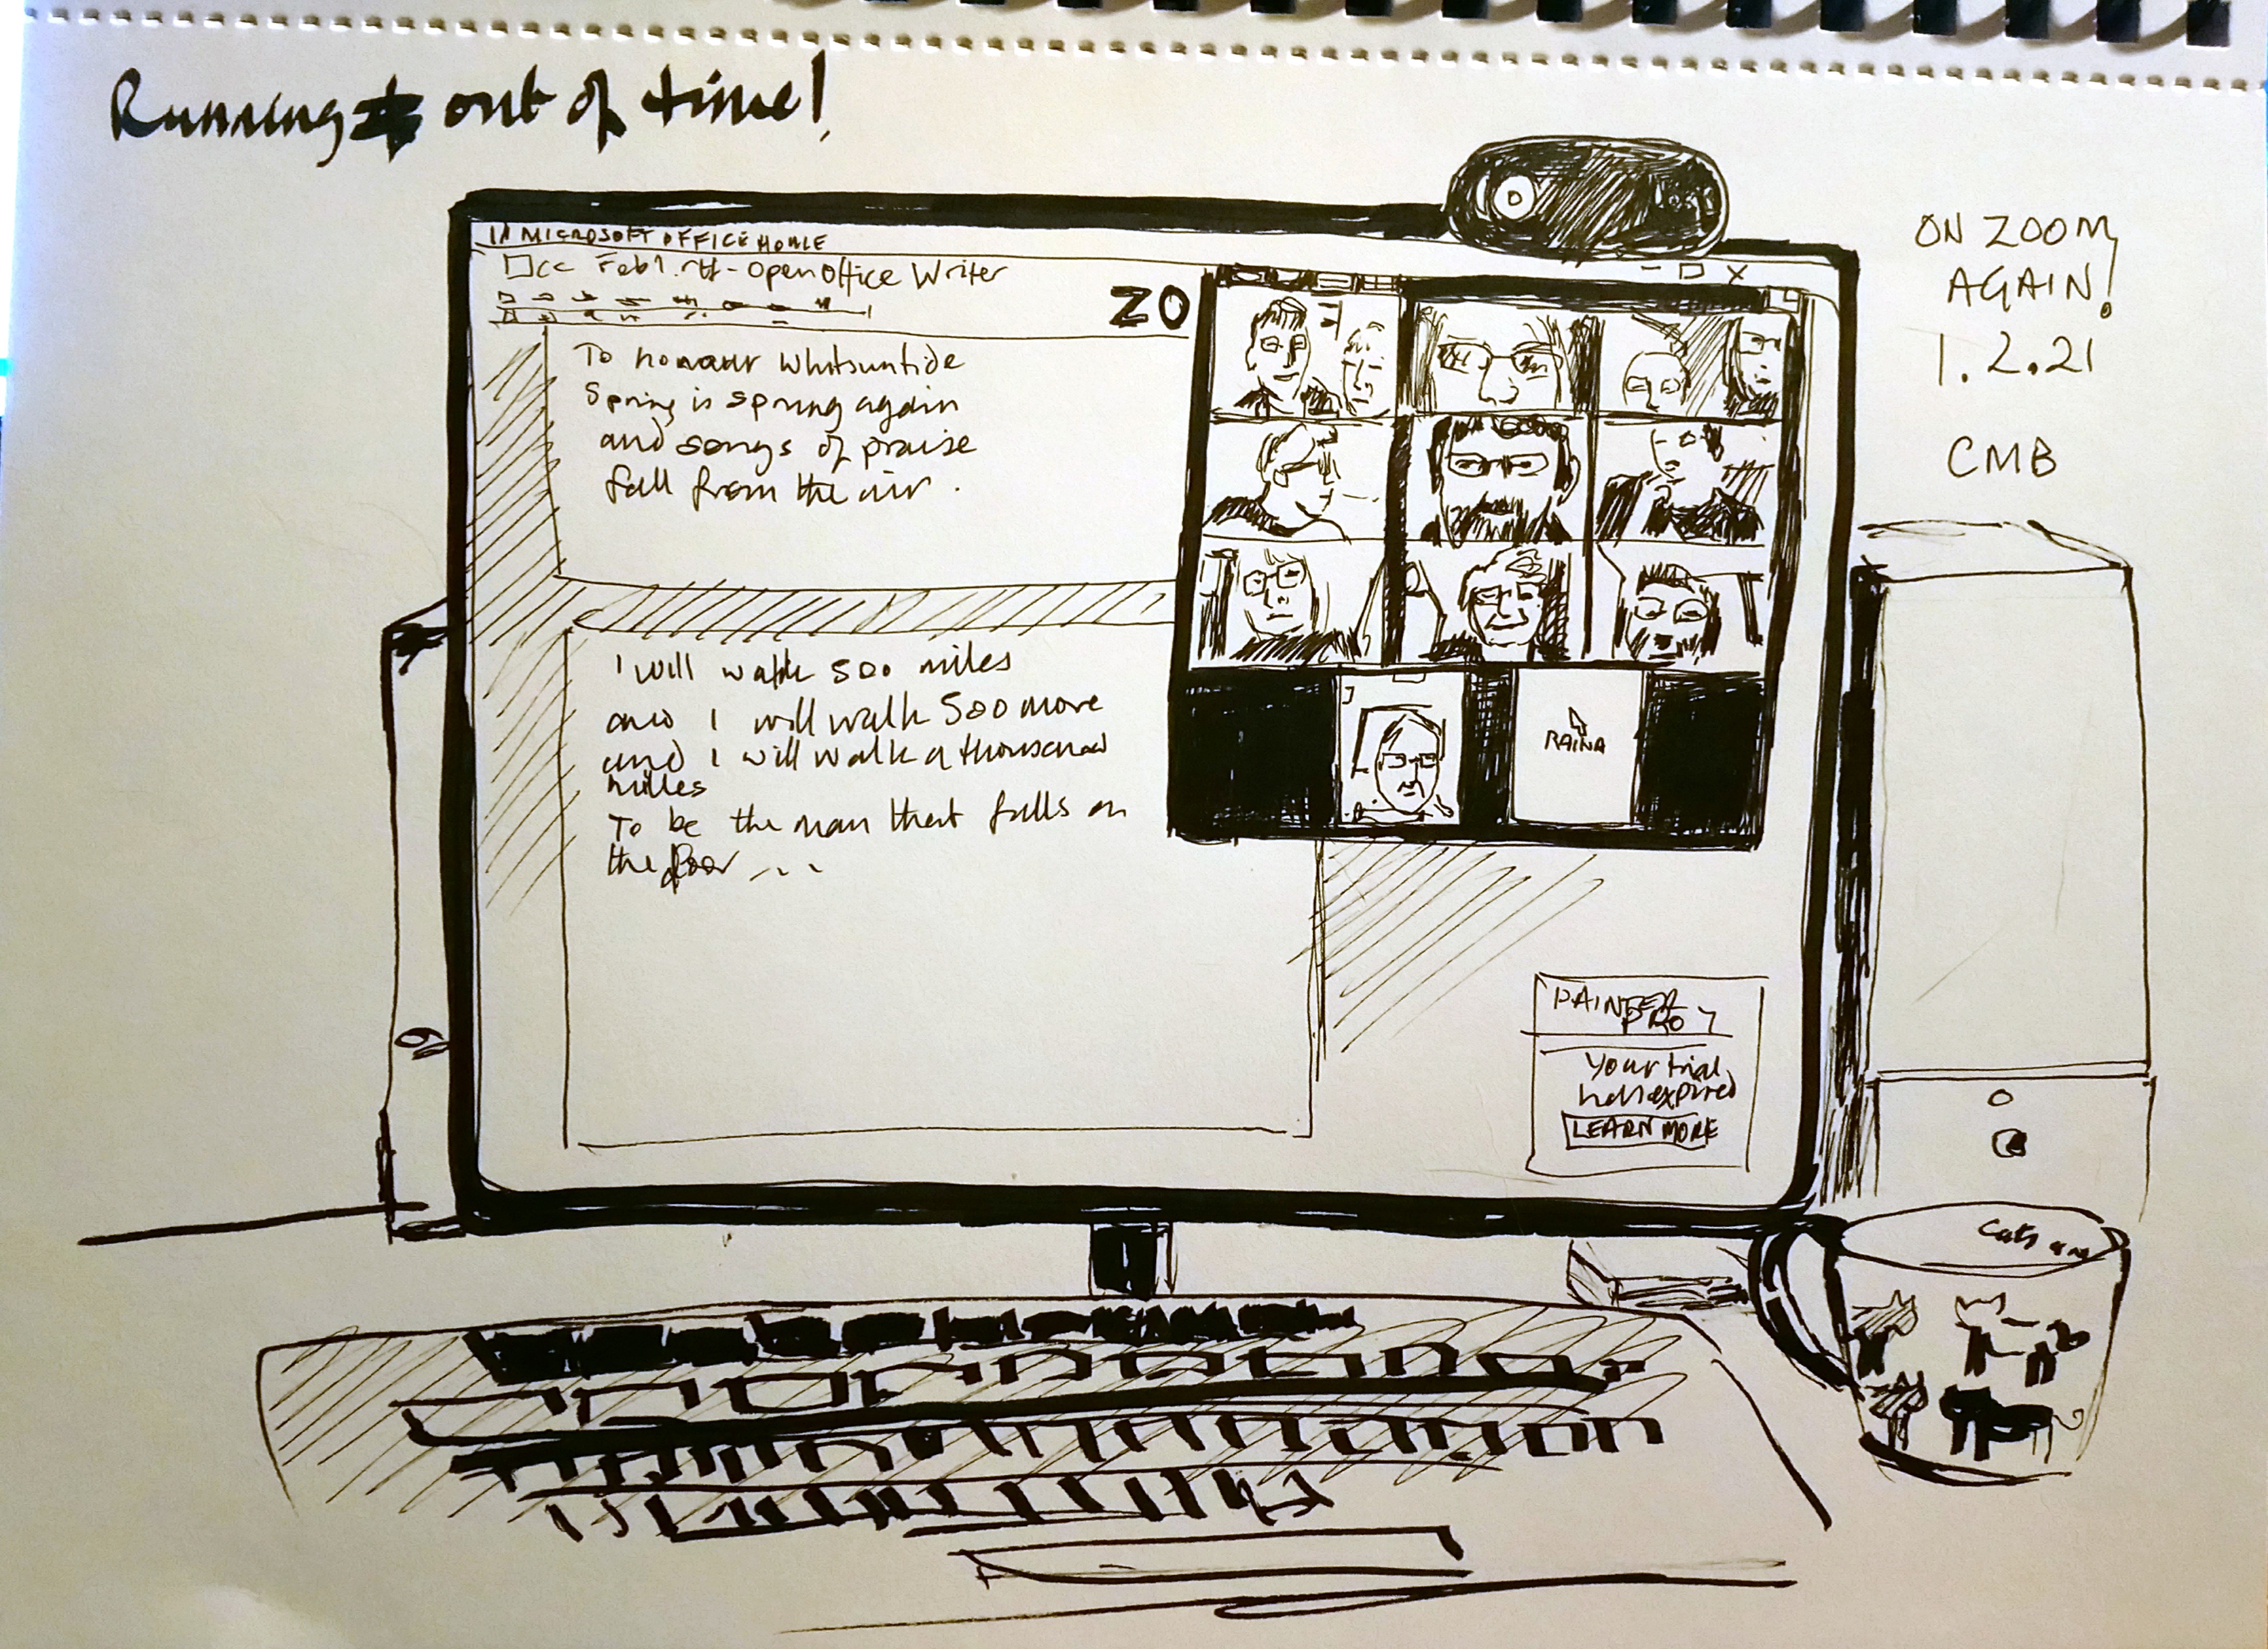 Running out of time!
ON ZOOM
AGAIN!
1.2.21
CMB
MICROSOFT OFFICE HOME
cc Feb1.rtf - OpenOffice Writer
ZO
To honour Whitsuntide
Spring is sprung again
and songs of praise
fall from the air.
I will walk 500 miles
and I will walk 500 more
and I will walk a thousand
miles
To be the man that falls on
the floor ...
RAINA
PAINTER
PRO 7
Your trial
has expired
LEARN MORE
Cats are